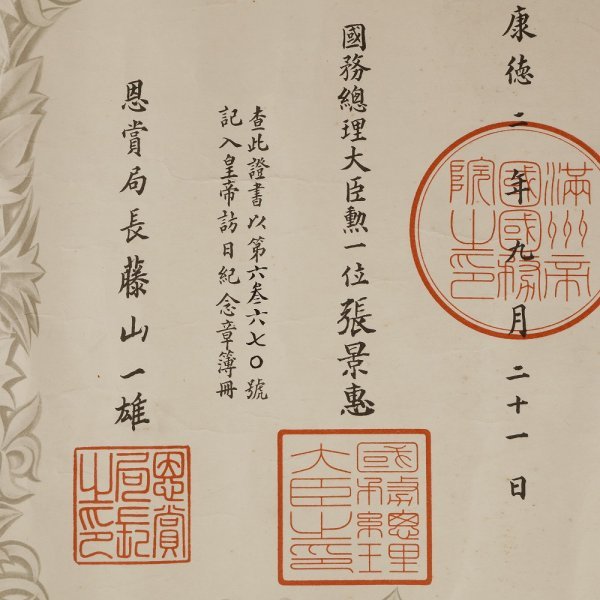 康德二年九月二十一日
滿州帝
國國務
院之印
國務總理大臣勲一位張景惠
國務總理
大臣之印
查此證書以第六叁六七〇號
記入皇帝訪日紀念章簿冊
恩賞局長藤山一雄
恩賞
局長
之印